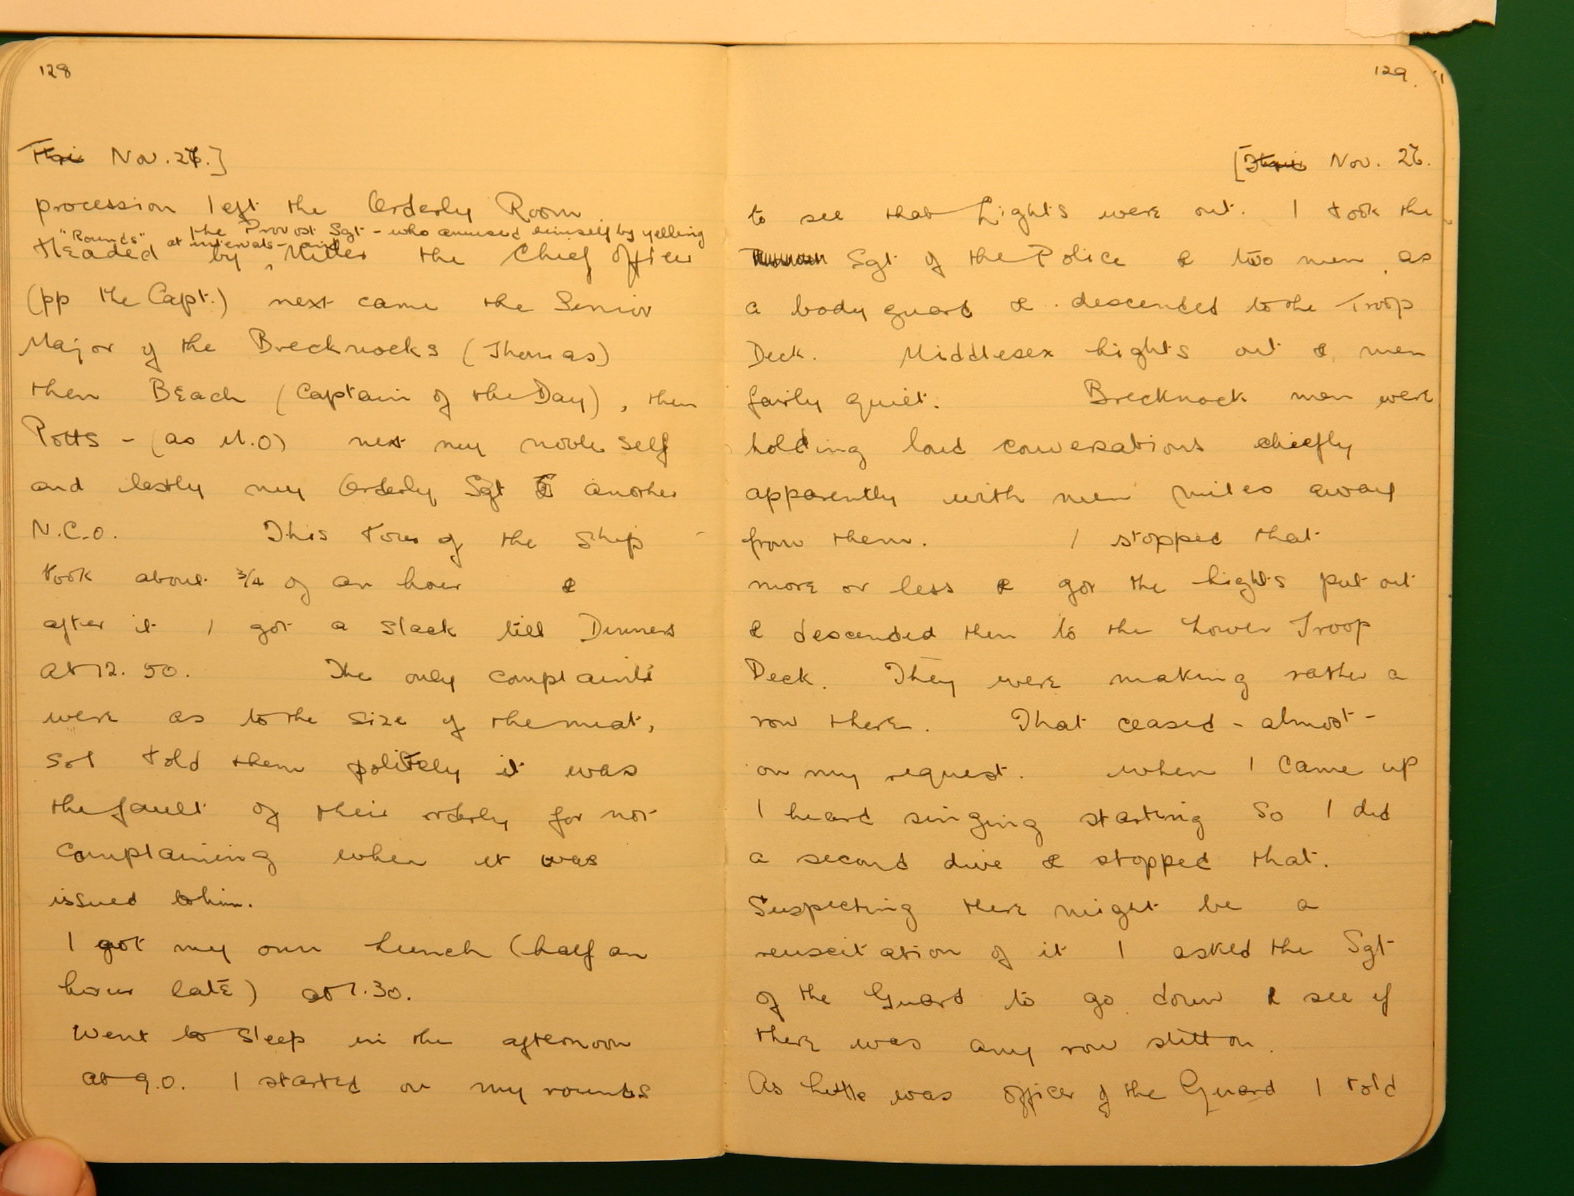 128
Nov. 26.]
procession left the Orderly Room
the Provost Sgt - who amused himself by yelling
"Rounds" at intervals - and
Headed by, the Chief Officer
(pp the Capt.) next came the Senior
Major of the Brecknocks (Thomas)
then Beach (Captain of the Day), then
Potts - (as M.O) next my noble self
and lastly my Orderly Sgt & another
N.C.O. This tour of the ship
took about 3/4 of an hour &
after it I got a slack till Dinners
at 12.50. The only complaints
were as to the size of the meat,
so I told them politely it was
the fault of their orderly for not
complaining when it was
issued to him.
I got my own lunch (half an
hour late) at 1.30.
Went to sleep in the afternoon
at 9.0. I started on my rounds
129.
[Nov. 26.
to see that Lights were out. I took the
Sgt of the Police & two men as
a body guard & descended to the Troop
Deck. Middlesex lights out & men
fairly quiet. Brecknock men were
holding loud conversations chiefly
apparently with men miles away
from them. I stopped that
more or less & got the lights put out
& descended then to the Lower Troop
Deck. They were making rather a
row there. That ceased - almost -
on my request. When I came up
I heard singing starting so I did
a second dive & stopped that.
Suspecting there might be a
resuscitation of it I asked the Sgt
of the Guard to go down & see if
there was any row still on.
As was officer of the Guard I told